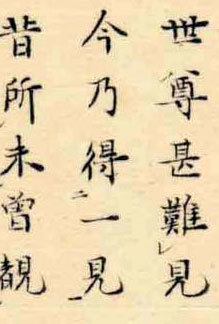 世尊甚難見
今乃得一見
昔所未曾覩